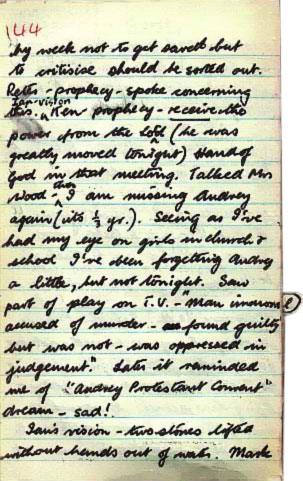 144
by week not to get saved but
to critisise should be sorted out.
- prophecy - spoke concerning
Ian - vision
this. Ken prophecy - receive the
power from the Lord (he was
greatly moved tonight) Hand of
God in that meeting. Talked Mrs
Wood - I am missing Audrey
again (its ⅓ yr.). Seeing as I've
had my eye on girls in church &
school I've been forgetting Audrey
a little, but not tonight. Saw
part of play on T.V. - "Man
accused of murder - found guilty
but was not - was oppressed in
judgement." Later it reminded
me of "Audrey Protestant Convent"
dream - sad!
Ian's vision - two stones lifted
without hands out of water. Mark